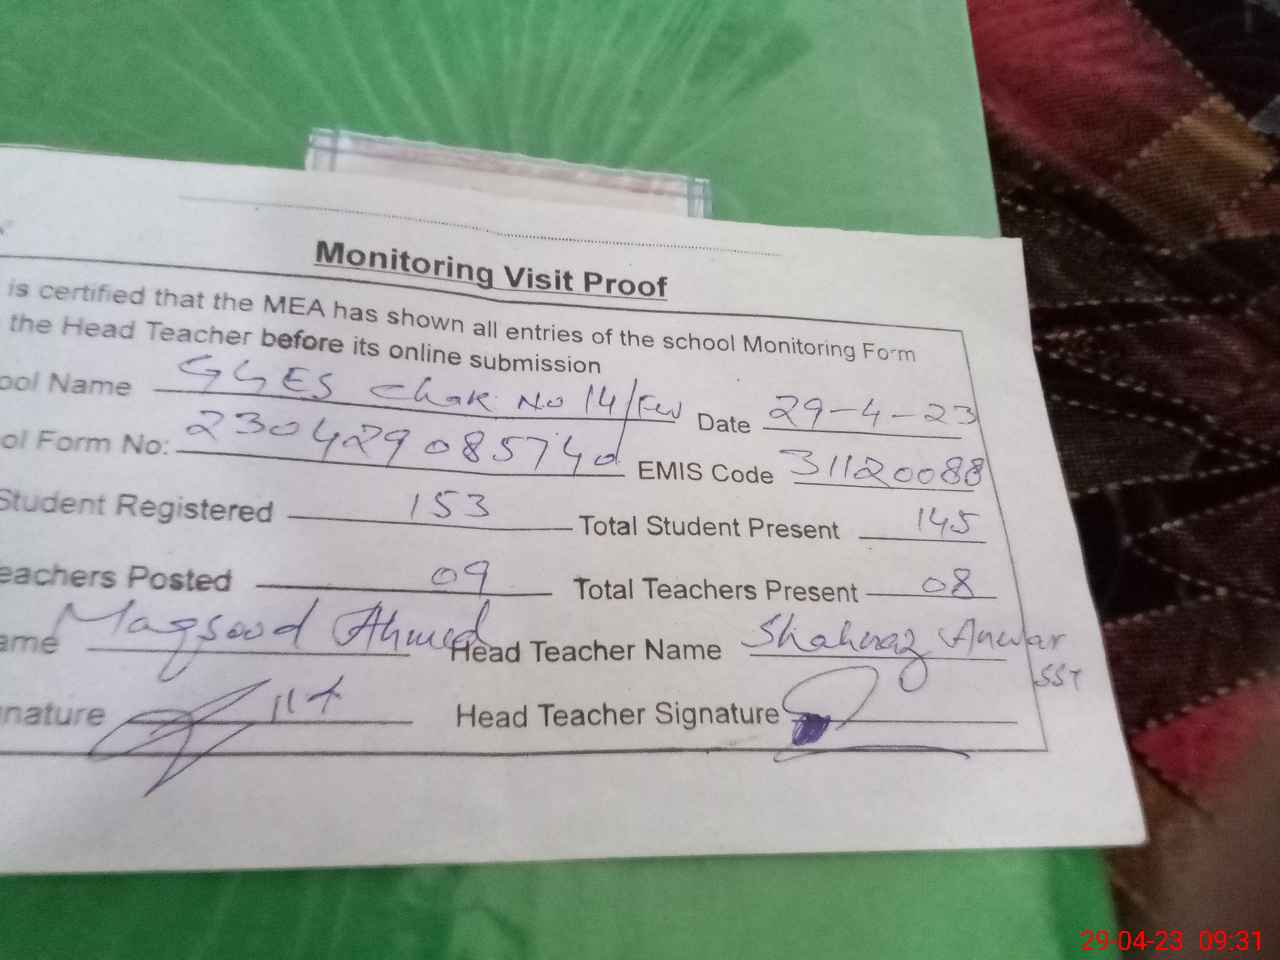 Monitoring Visit Proof
is certified that the MEA has shown all entries of the school Monitoring Form
the Head Teacher before its online submission
ool Name GGES Chak No 14/FW Date 29-4-23
ol Form No: 230429085740 EMIS Code 31120088
Student Registered 153 Total Student Present 145
eachers Posted 09 Total Teachers Present 08
ame Maqsood Ahmed Head Teacher Name Shahnaz Anwar
SST
nature Head Teacher Signature
29-04-23 09:31